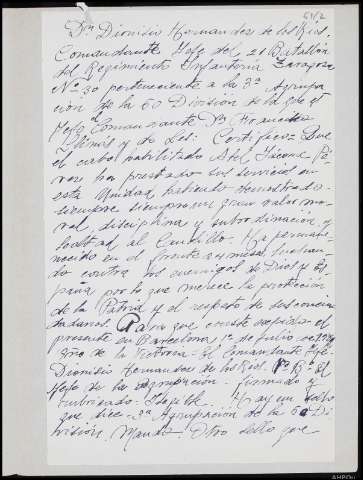 Dn Dionisio Hernandez de los Rios.
Comandante Jefe del 2º Batallón
del Regimiento Infantería Zaragoza
Nº 30 perteneciente a la 3ª Agrupa
ción de la 60 División de la que es
Jefe Comandante Dn Francisco
y de Les: Certifico: Que
el cabo habilitado Abel Jácome Pé
rez ha prestado sus servicios en
esta Unidad habiendo demostrado
siempre siempre un gran valor mo
ral disciplina y subordinación y
lealtad al Caudillo. Ha permane
cido en el frente meses luchan
do contra los enemigos de Dios y Es
paña por lo que merece la protección
de la Patria y el respeto de sus conciu
dadanos. Para que conste expido el
presente en Barcelona 1º de Julio de 1939
Año de la Victoria = El Comandante Jefe
Dionisio Hernandez de los Rios. Vº Bº El
Jefe de la Agrupación - firmado y
rubricado. Ilegible. Hay un sello
que dice - 3ª Agrupación de la 60 Di
visión. Mando. Otro sello que